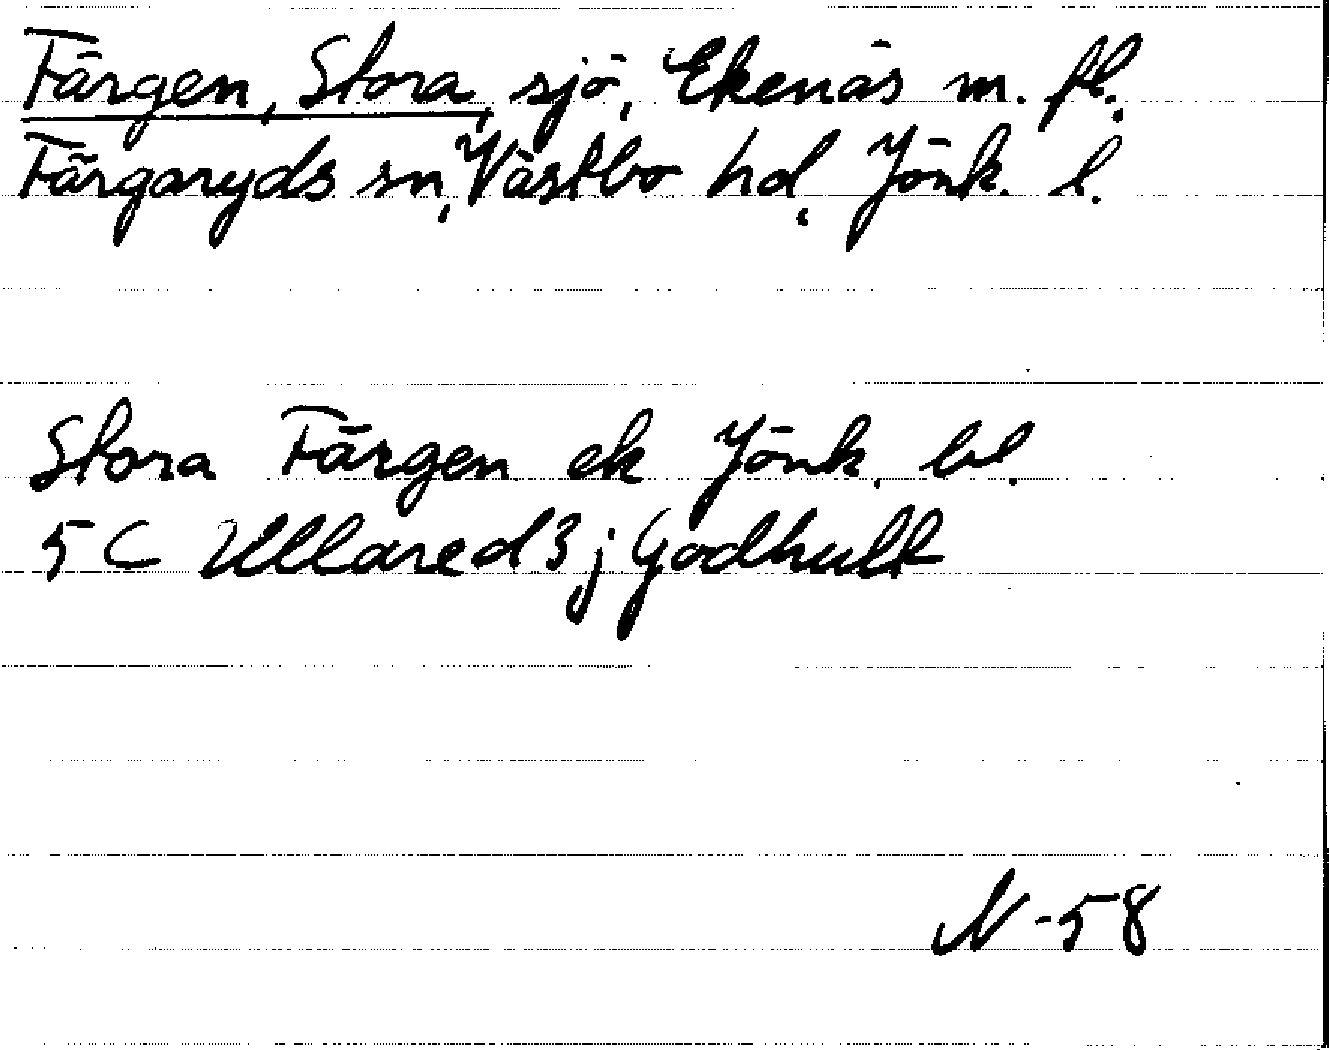 Färgen, Stora, sjö, Ekenäs m. fl.
Färgaryds sn, Västbo hd, Jönk. l.
Stora Färgen ek Jönk. bl.
5 C Ullared 3 j Godhult
N -58